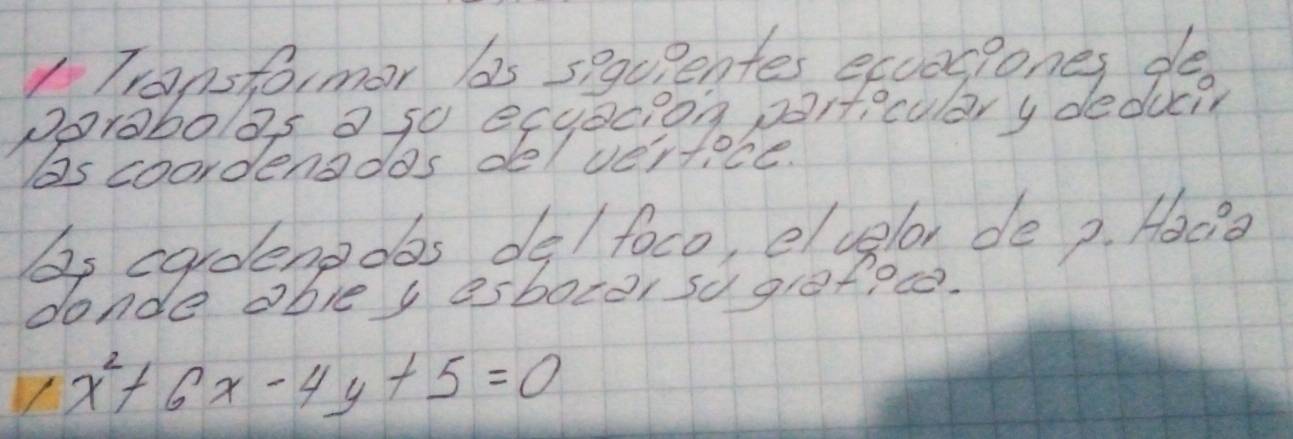 1 Transformar las siguientes ecuaciones de
parabolas a su ecuación particular y deducir
las coordenadas del vértice.
las cordenadas del foco, el valor de p. Hacia
donde abre y esbozar su grafica.
1 x² + 6x - 4y + 5 = 0